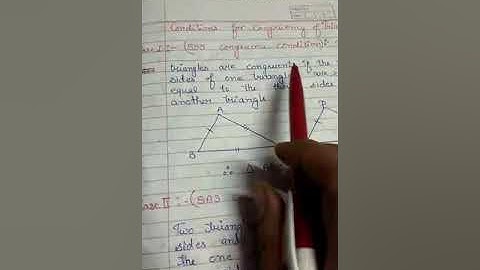 Conditions for congruency of
(SSS congruence condition)
triangles are congruent if the
sides of one triangle are
equal to the three sides
another triangle.
A
D
B
∴ Δ
Case II :- (SAS
Two
sides and
the one